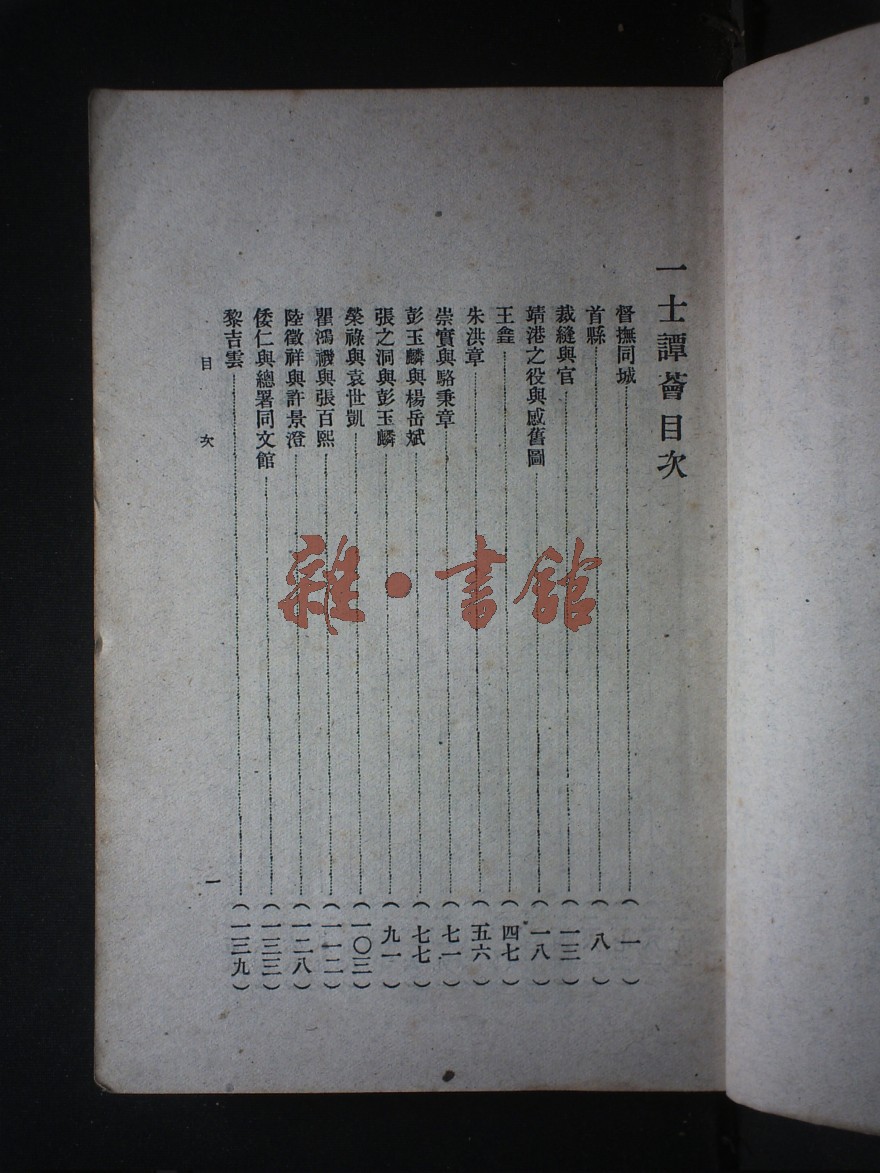 一士譚薈目次
督撫同城（一）
首縣（八）
裁縫與官（一三）
靖港之役與感舊圖（一八）
王鑫（四七）
朱洪章（五六）
崇實與駱秉章（七一）
彭玉麟與楊岳斌（七七）
張之洞與彭玉麟（九一）
榮祿與袁世凱（一〇三）
瞿鴻禨與張百熙（一一二）
陸徵祥與許景澄（一二八）
倭仁與總署同文館（一三三）
黎吉雲（一三九）
目次
一
雜·書館